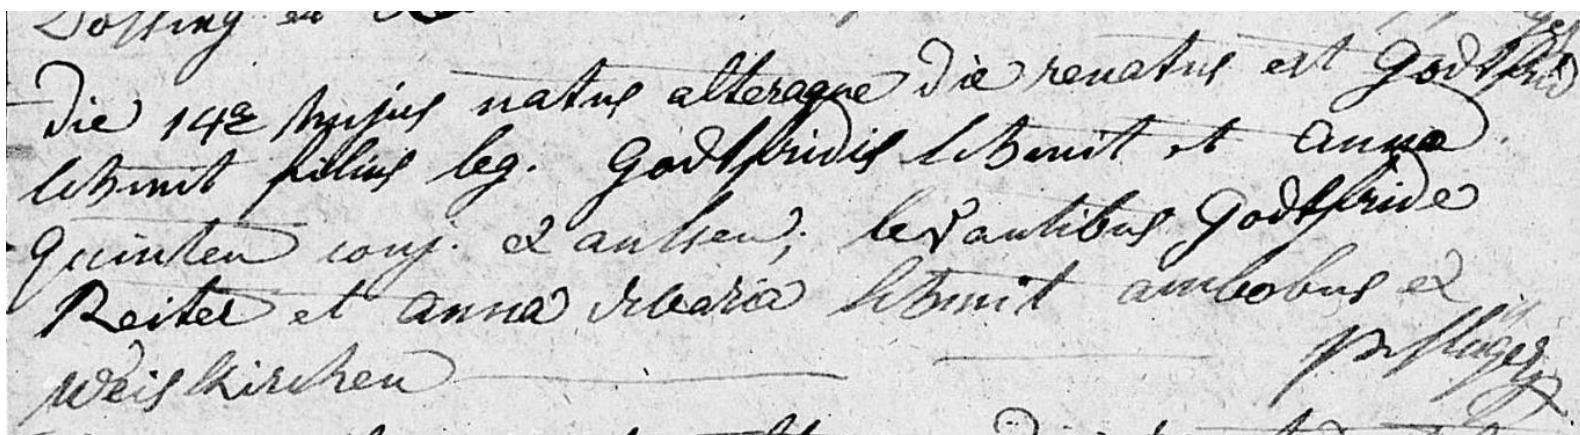 die 14a hujus natus alteraque die renatus est Godtfrid
schmit filius leg. Godtfridis schmit et anna
Quinten conj. ex ; levantibus Godtfride
Reiter et anna Maria schmit ambobus ex
Weiskirchen